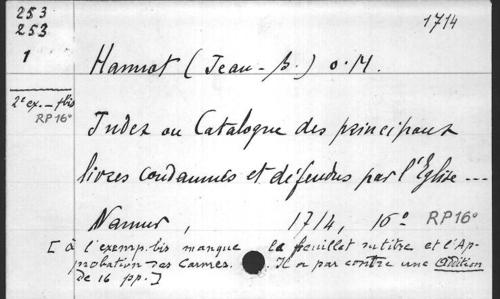 253 1714
253
1
Hannot (Jean-B.) o.M.
2e ex. - f bis
RP 16°
Index ou Catalogue des principaux
livres condamnés et défendus par l'Eglise ---
Namur, 1714, 16° RP 16°
[ à l'exemp. bis manque le feuillet du titre et l'Ap-
probation des Carmes. Il a par contre une addition
de 16 pp.]